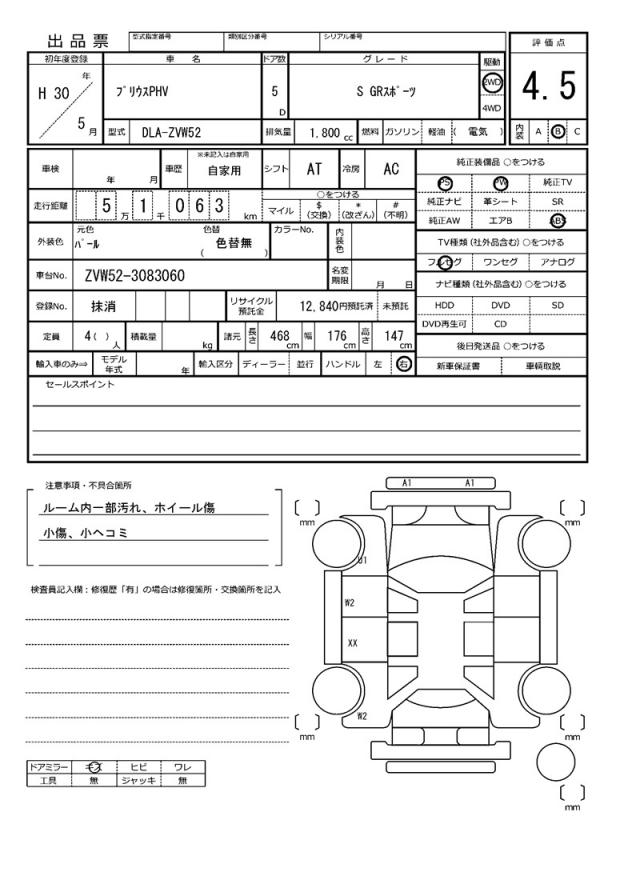 出品票
型式指定番号 類別区分番号 シリアル番号
評価点
4.5
内装 A B C
初年度登録 車名 ドア数 グレード 駆動
H 30 年 5 月
プリウスPHV 5 D S GRスポーツ 2WD 4WD
型式 DLA-ZVW52 排気量 1.800 cc 燃料 ガソリン 軽油 ( 電気 )
車検 年 月 車歴 ※未記入は自家用 自家用 シフト AT 冷房 AC
走行距離 5 万 1 千 0 6 3 km
○をつける
マイル $(交換) *(改ざん) #(不明)
外装色 元色 パール 色替 色替無 ( ) カラーNo. 内装色
車台No. ZVW52-3083060 名変期限 月 日
登録No. 抹消 リサイクル預託金 12,840円預託済 未預託
定員 4( ) 人 積載量 kg 諸元 長さ 468 cm 幅 176 cm 高さ 147 cm
輸入車のみ⇒ モデル年式 年 輸入区分 ディーラー 並行 ハンドル 左 右
純正装備品 ○をつける
PS PW 純正TV
純正ナビ 革シート SR
純正AW エアB ABS
TV種類(社外品含む)○をつける
フルセグ ワンセグ アナログ
ナビ種類(社外品含む)○をつける
HDD DVD SD
DVD再生可 CD
後日発送品 ○をつける
新車保証書 車輌取説
セールスポイント
注意事項・不具合箇所
ルーム内一部汚れ、ホイール傷
小傷、小ヘコミ
検査員記入欄:修復歴「有」の場合は修復箇所・交換箇所を記入
ドアミラー キズ ヒビ ワレ
工具 無 ジャッキ 無
A1 A1
mm mm
U1
W2
XX
W2
mm mm
mm